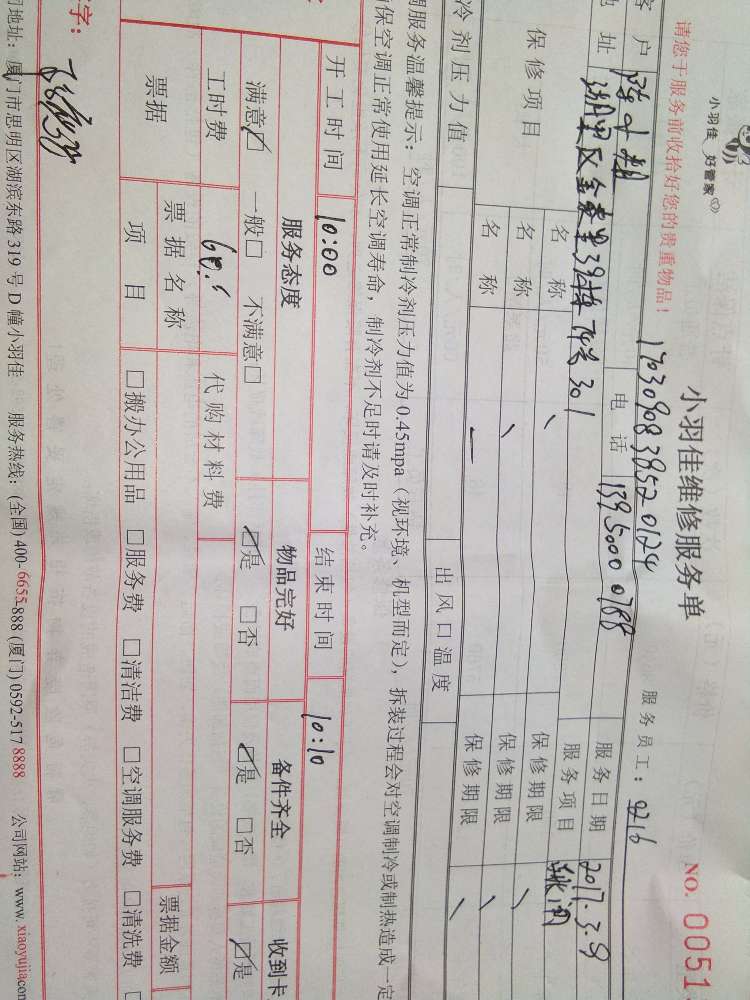 小羽佳 好管家
小羽佳维修服务单
NO. 0051
请您于服务前收拾好您的贵重物品!
1703090838520124
服务员工: 0216
客户
电话 139 5000 0788
服务日期 2017.3.9
地址 湖里区金尚里39栋 74号 301
服务项目
保修项目
名称
保修期限
名称
保修期限
名称
保修期限
冷剂压力值
出风口温度
调服务温馨提示: 空调正常制冷剂压力值为0.45mpa(视环境、机型而定), 拆装过程会对空调制冷或制热造成一定
保空调正常使用延长空调寿命, 制冷剂不足时请及时补充。
开工时间 10:00
结束时间 10:10
服务态度
物品完好
备件齐全
收到卡
满意☑ 一般□ 不满意□
☑是 □否
☑是 □否
☑是
工时费 60.
代购材料费
票据
票据名称
票据金额
项目
□搬办公用品 □服务费 □清洁费 □空调服务费 □清洗费
字:
司地址: 厦门市思明区湖滨东路319号D幢小羽佳 服务热线: (全国) 400-6655-888 (厦门) 0592-517 8888 公司网站: www.xiaoyujia.com